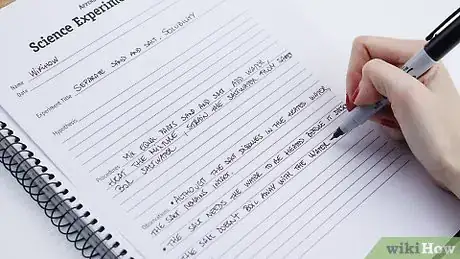 Science Experiment
Name WIKIHOW
Date
Experiment Title SEPARATE SAND AND SALT, SOLUBILITY
Hypothesis
Procedures MIX EQUAL PARTS SAND AND SALT, ADD WATER
HEAT THE MIXTURE, STRAIN THE SALTWATER FROM SAND
BOIL SALTWATER
Observations • ALTHOUGH THE SALT DISSOLVES IN THE HEATED WATER,
THE SAND REMAINS INTACT
• THE WATER NEEDS TO BE HEATED BEFORE IT
• THE SALT DOESN'T BOIL AWAY WITH THE WATER
wikiHow